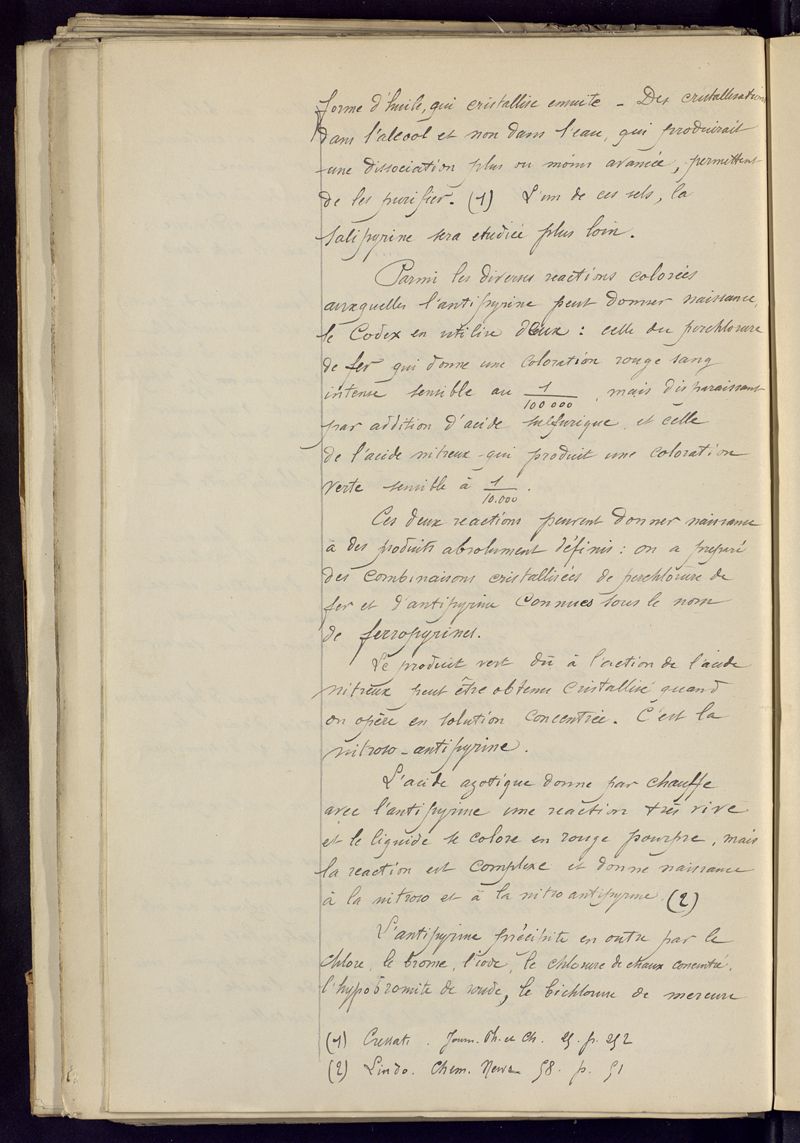 forme d'huile, qui cristallise ensuite - Des cristallisations
dans l'alcool et non dans l'eau, qui produirait
une dissociation plus ou moins avancée, permettent
de les purifier. (1) L'un de ces sels, la
salipyrine sera etudiée plus loin.
Parmi les diverses reactions colorées
auxquelles l'antipyrine peut donner naissance,
le Codex en utilise deux : celle du perchlorure
de fer qui donne une coloration rouge sang
intense sensible au 1/100 000, mais disparaissant
par addition d'acide sulfurique, et celle
de l'acide nitreux qui produit une coloration
verte sensible à 1/10.000.
Ces deux reactions peuvent donner naissance
à des produits absolument définis : on a preparé
des combinaisons cristallisées de perchlorure de
fer et d'antipyrine connues sous le nom
de ferropyrines.
Le produit vert dû à l'action de l'acide
nitreux peut être obtenu cristallisé quand
on opère en solution concentrée. C'est la
nitroso-antipyrine.
L'acide azotique donne par chauffe
avec l'antipyrine une reaction très vive
et le liquide se colore en rouge pourpre, mais
la reaction est complexe et donne naissance
à la nitroso et à la nitroantipyrine. (2)
L'antipyrine précipite en outre par le
chlore, le brome, l'iode, le chlorure de chaux concentré,
l'hypobromite de soude, le bichlorure de mercure
(1) Journ. Ph. et Ch. p. 252
(2) Lindo. Chem. News 58. p. 51